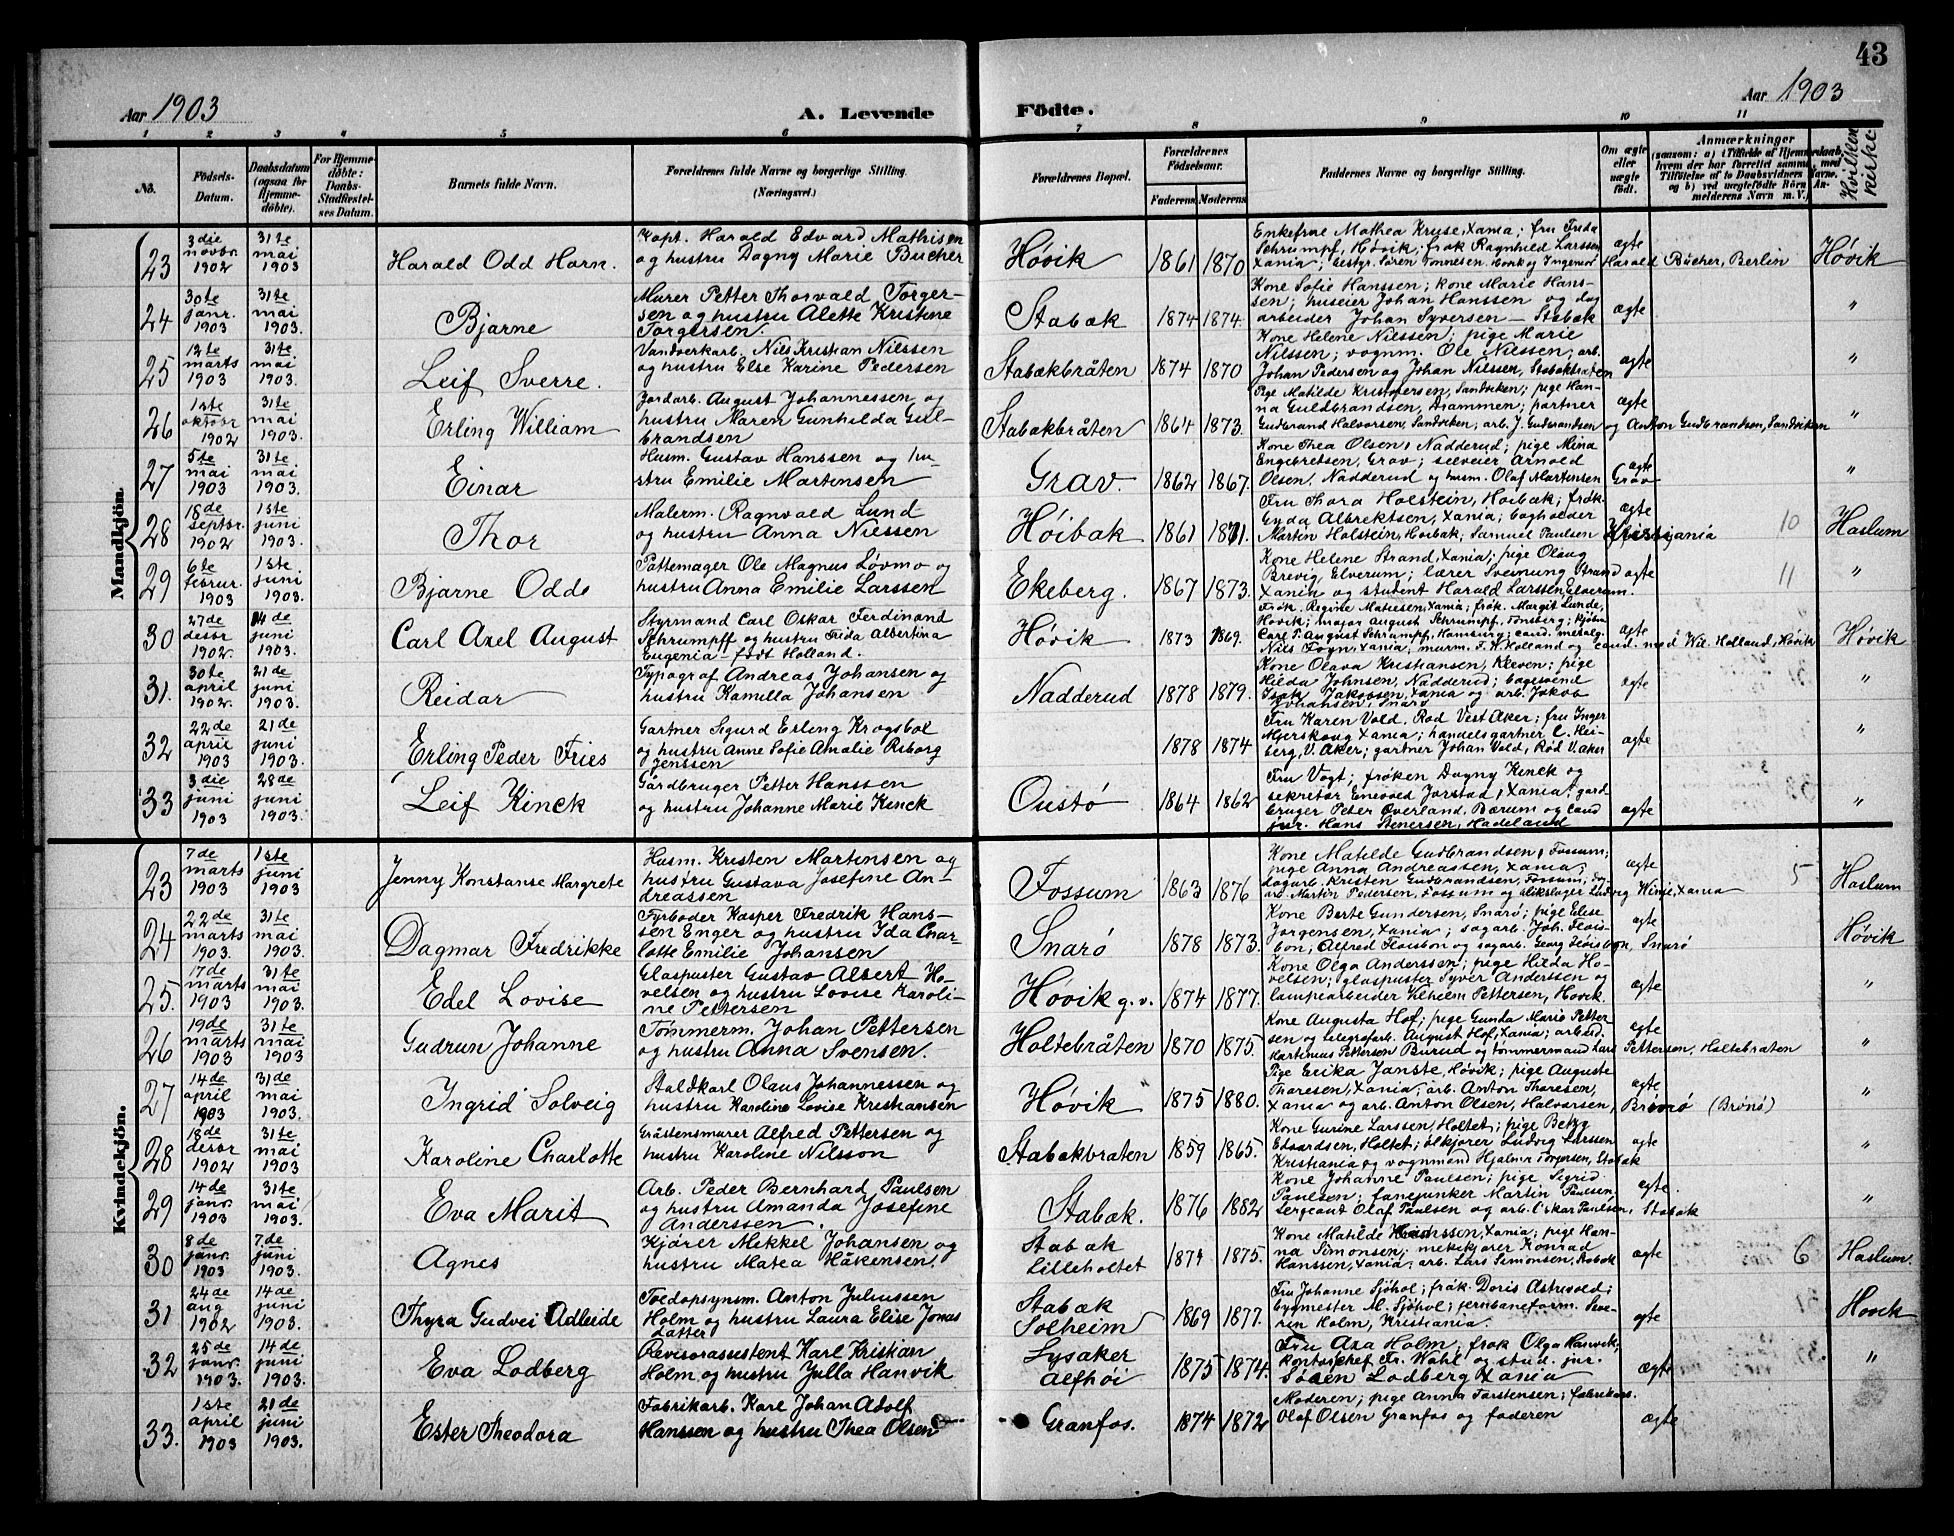 43
Aar 1903
A. Levende Födte.
Aar 1903
1 2 3 4 5 6 7 8 9 10 11
No.
Födsels-Datum.
Daabsdatum (ogsaa for Hjemme-döbte).
For Hjemme-döbte: Daabs-Stadfæstel-ses Datum.
Barnets fulde Navn.
Forældrenes fulde Navne og borgerlige Stilling. (Næringsvei.)
Forældrenes Bopæl.
Forældrenes Födselsaar.
Faderens Moderens
Faddernes Navne og borgerlige Stilling.
Om ægte eller uægte födt.
Anmærkninger
(saasom: a) i Tilfælde af Hjemmedaab, hvem der har forrettet samme, med Tilföielse af to Daabsvidners Navne, og b) ved uægtefödte Börn An-melderens Navn m. V.)
Hvilken kirke.
Mandkjön.
23 3die novbr. 1902 31te mai 1903 Harald Odd Horn.
Kapt. Harald Edvard Mathisen
og hustru Dagny Marie Bucher
Høvik 1861 1870
Enkefrue Mathea Kruse, Xania; fru Frida
Schrumpf, Høvik; frøk Ragnhild Larssen
Xania; Søren Tønnesen, Høvik og Ingeniør Harald Bücher, Berlin
ægte Høvik
24 30te janr. 1903 31te mai 1903 Bjarne
Murer Petter Thorvald Torger-
sen og hustru Alette Kristine
Torgersen.
Stabæk 1874 1874.
Kone Sofie Hanssen; kone Marie Hans-
sen; huseier Johan Hanssen og dag
arbeider Johan Syversen – Stabæk
ægte "
25 12te marts 1903 31te mai 1903. Leif Sverre.
Vandverkarb. Nils Kristian Nilssen
og hustru Else Karine Pedersen
Stabækbråten 1874 1870
Kone Helene Nilssen; pige Marie
Nilssen; vognm. Ole Nilssen; arb.
Johan Pedersen og Johan Nilssen, Stabækbråten
ægte "
26 1ste oktobr 1902 31te mai 1903. Erling William
Jordarb. August Johannessen og
hustru Maren Gunhilda Gul-
brandsen
Stabækbråten 1864 1873.
Pige Matilde Kristofersen, Sandviken; pige Han-
na Guldbrandsen, Drammen; partner
Gudbrand Halvorsen, Sandviken; arb. J. Gudbrandsen og Anton Gudbrandsen, Sandviken
ægte "
27 5te mai 1903 31te mai 1903. Einar
Husm. Gustav Hanssen og hu-
stru Emilie Martensen
Grav. 1862 1867.
Kone Thea Olsen, Nadderud; pige Mina
Engebretsen, Grav; selveier Arnold
Olsen, Nadderud og husm. Olaf Martensen Grav
ægte "
28 18de septbr. 1902 1ste juni 1903. Thor
Malerm. Ragnvald Lund
og hustru Anna Niessen
Høibak 1861 1871.
Fru Thora Holstein, Høibak; frøk.
Gyda Albrektsen, Xania; bogholder
Martin Holstein, Høibak; Samuel Paulsen Kristiania
ægte 10 Haslum
29 6te februr. 1903 1ste juni 1903. Bjarne Odd
Pottemager Ole Magnus Løvmo og
hustru Anna Emilie Larssen
Ekeberg. 1867 1873.
Kone Helene Strand, Xania; pige Olaug
Brevig, Elverum; lærer Sveinung Strand
Xania og student Harald Larsten, Elverum.
ægte 11 "
30 27de desbr 1902. 14de juni 1903. Carl Axel August
Styrmand Carl Oskar Ferdinand
Schrumpff og hustru Frida Albertina
Eugenia – født Holland.
Høvik 1873 1869.
Frøk. Regine Mathesen, Xania; frøk. Margit Lunde,
Høvik; major August Schrumpf, Tønsberg; kjøbm
Carl T. August Schrumpf, Hamburg; cand. metalg.
Nils Fogn, Xania, murm. F. H. Holland og cand. med Wil. Holland, Høvik
ægte Høvik
31. 30te april 1902. 21de juni 1903. Reidar
Typograf Andreas Johansen og
hustru Kamilla Johansen
Nadderud 1878 1879.
Kone Olava Kristiansen, Kleven; pige
Hilda Johnsen, Nadderud; bagersvend
Isak Jakobsen, Xania og arb. Jakob
Johansen, Snarø
ægte "
32 22de april 1903 21de juni 1903. Erling Peder Fries
Gartner Sigurd Erling Krogsbøl
og hustru Anne Sofie Amalie Riborg
Jenssen
1878 1874
Fru Karen Vold. Rød Vest Aker; fru Inger
Mjerskaug Xania; handelsgartner C. Hei-
berg, V. Aker; gartner Johan Vold, Rød V. aker
ægte "
33 3die juni 1903 28de juni 1903. Leif Kinck
Gårdbruger Petter Hanssen
og hustru Johanne Marie Kinck
Oustø 1864 1862
Fru Vogt; frøken Dagny Kinck og
sekretær Enevold Jorstad, Xania; gard
bruger Peter Øverland, Bærum og cand
jur. Hans Stenersen, Hadeland
ægte "
Kvindekjön.
23 7de marts 1903 1ste juni 1903 Jenny Konstanse Margrete
Husm. Kristen Martinsen og
hustru Gustava Josefine An-
dreassen
Fossum 1863 1876
Kone Matilde Gudbrandsen, Fossum;
pige Anna Andreassen, Xania;
dagarb. Kristen Gudbrandsen, Fossum;
arb. Martin Pedersen, Fossum og blikslager Ludvig Winje, Xania
ægte 5 Haslum
24 22de marts 1903. 31te mai 1903. Dagmar Fredrikke
Fyrbøder Kasper Fredrik Hans-
sen Enger og hustru Ida Char-
lotte Emilie Johansen
Snarø 1878 1873.
Kone Berte Gundersen, Snarø; pige Elise
Jørgensen, Xania; sagarb. Joh. Fløis-
bon; Alfred Fløisbon og sagarb. Georg Fløisbon, Snarø
ægte Høvik
25. 17de marts 1903 31te mai 1903. Edel Lovise
Glaspuster Gustav Albert Ho-
velsen og hustru Lovise Karoli-
ne Pettersen
Høvik g. v. 1874 1877.
Kone Olga Anderssen; pige Hilda Ho-
velsen; glaspuster Syver Anderssen og
lampearbeider Vilhelm Pettersen, Høvik.
ægte "
26 19de marts 1903 31te mai 1903 Gudrun Johanne
Tømmerm. Johan Pettersen
og hustru Anna Svensen.
Holtebråten 1870 1875.
Kone Augusta Hof; pige Gunda Marie Petter
sen og telegrafarb. August Hof, Xania; arbeid.
Martinus Pettersen Burud og tømmermand Lars Pettersen, Holtebråten
ægte "
27 14de april 1903 31de mai 1903. Ingrid Solveig
Staldkarl Olaus Johannessen og
hustru Karoline Lovise Kristiansen
Høvik 1875 1880.
Pige Erika Janste, Høvik; pige Auguste
Thoresen, Xania; arb. Anton Thoresen,
Xania og arb. Anton Olsen, Halvorsen, Brønø (Brønø)
ægte "
28 18de desbr 1902 31te mai 1903 Karoline Charlotte
Gråstensmurer Alfred Pettersen og
hustru Karoline Nilsson
Stabækbraten 1859 1865.
Kone Gurine Larssen, Holtet; pige Betzy
Edvardsen, Holtet; ølkjører Ludvig Larssen
Kristiania og vognmand Hjalmar Torgersen, Stabæk
ægte "
29 14de janr. 1903 31te mai 1903. Eva Marit
Arb. Peder Bernhard Paulsen
og hustru Amanda Josefine
Anderssen.
Stabæk. 1876 1882
Kone Johanne Paulsen; pige Sigrid
Paulsen; fanejunker Martin Paulsen,
Sergeant Olaf Paulsen og arb. Oskar Paulsen, Stabæk
ægte. "
30 8de janr. 1903 7de juni 1903. Agnes
Kjører Mikkel Johansen og
hustru Matea Håkensen.
Stabæk
Lilleholtet 1874 1875.
Kone Matilde Hanssen, Xania; pige Han-
na Simonsen; melkekjører Konrad
Hanssen, Xania, arb. Lars Simonsen, Stabæk
ægte 6 Haslum.
31 24de aug 1902 14de juni 1903. Thyra Gudvei Adleide
Tredopsynsm. Anton Juliussen
Holm og hustru Laura Elise Jonas
datter
Stabæk
Solheim 1869 1877.
Fru Johanne Sjøhol; frøk. Doris Astrivold;
bygmester M. Sjøhol; jernbaneform. Sve-
ren Holm, Kristiania.
ægte Høvik
32 25de janr. 1903. 14de juni 1903. Eva Lodberg
Revisorassistent Karl Kristian
Holm og hustru Julla Hanvik
Lysaker
Alfhøi 1875 1874.
Fru Aza Holm, frøk Olga Hanvik,
kontorchef Fr. Wahl og stud. jur.
Søren Lodberg Xania
ægte "
33. 1ste april 1903 21de juni 1903. Ester Theodora
Fabrikarb. Karl Johan Adolf
Hanssen og hustru Thea Olsen
Granfos. 1874 1872
Moderen; pige Anna Torstensen; fabrikarb.
Olaf Olsen Granfos og faderen
ægte